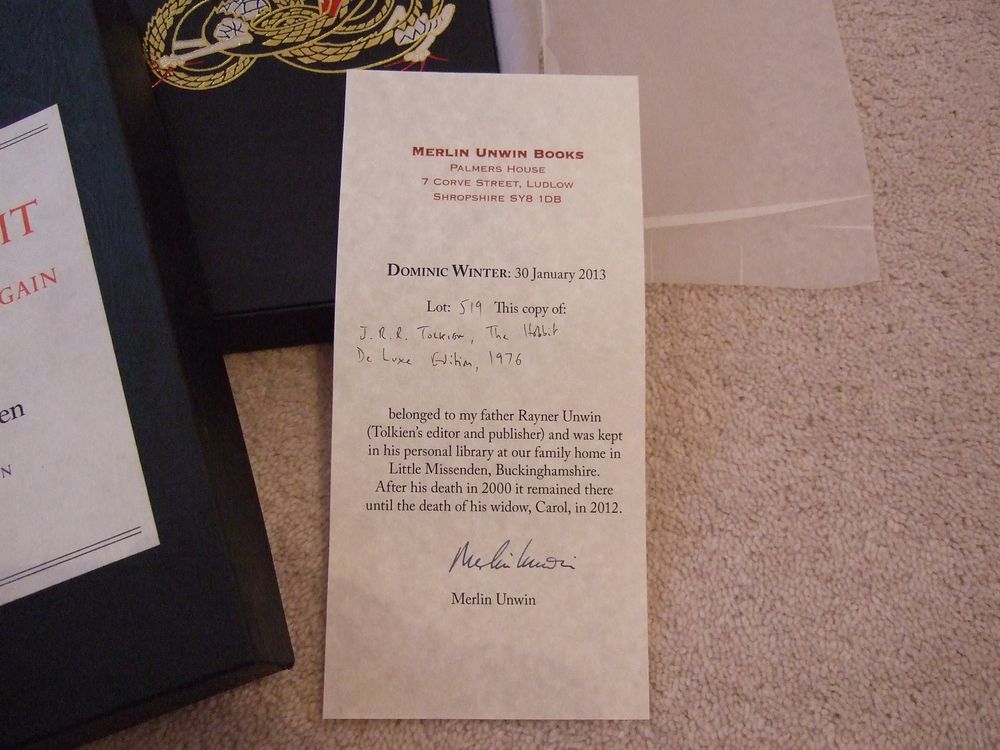 IT
GAIN
en
N
MERLIN UNWIN BOOKS
PALMERS HOUSE
7 CORVE STREET, LUDLOW
SHROPSHIRE SY8 1DB
DOMINIC WINTER: 30 January 2013
Lot: 519 This copy of:
J. R. R. Tolkien, The Hobbit
De Luxe Edition, 1976
belonged to my father Rayner Unwin
(Tolkien's editor and publisher) and was kept
in his personal library at our family home in
Little Missenden, Buckinghamshire.
After his death in 2000 it remained there
until the death of his widow, Carol, in 2012.
Merlin Unwin
Merlin Unwin